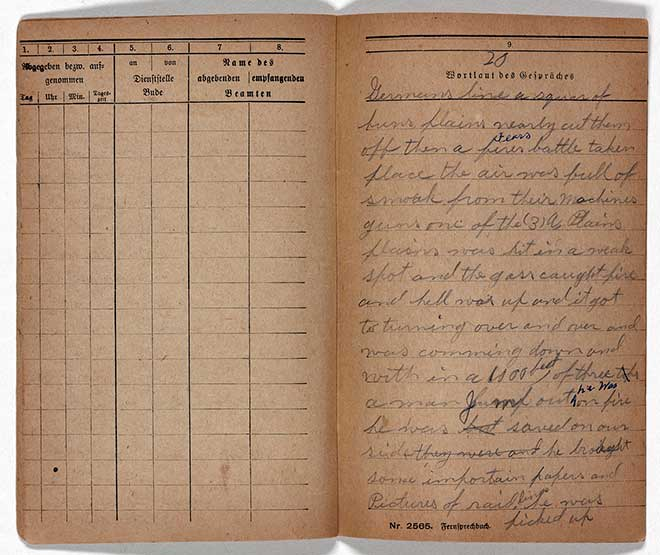 1. 2. 3. 4. 5. 6. 7. 8.
Abgegeben bezw. auf-
genommen
an von
Dienststelle
Bude
Name des
abgebenden empfangenden
Beamten
Tag Uhr Min. Tages-
zeit
9.
20
Wortlaut des Gespräches
Germans line a squar of
huns plains nearly cut them
off then a fires fears battle taken
place the air was full of
smoak from their machines
guns one of the (3) A. Plains
plains was hit in a weak
spot and the gass caught fire
and hell was up and it got
to turning over and over and
was comming down and
with in a 100 feet of three
a man Jump out he was on fire
he was but saved on our
side they were and he brought
some importain papers and
Pictures of raid line he was
picked up
Nr. 2565. Fernsprechbuch.